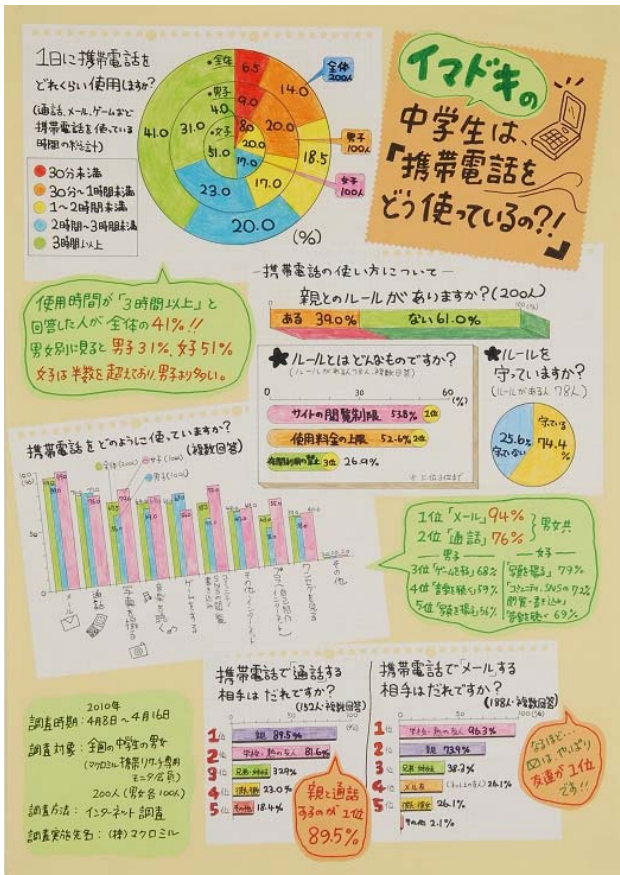 イマドキの
中学生は、
「携帯電話を
どう使っているの?!」
1日に携帯電話を
どれくらい使用しますか?
(通話、メール、ゲームなど
携帯電話を使っている
時間の合計)
30分未満
30分〜1時間未満
1〜2時間未満
2時間〜3時間未満
3時間以上
・全体
6.5
14.0
18.5
20.0
41.0
・男子
9.0
20.0
17.0
23.0
31.0
・女子
4.0
8.0
20.0
17.0
51.0
(%)
全体
200人
男子
100人
女子
100人
使用時間が「3時間以上」と
回答した人が全体の41%!!
男女別に見ると男子31%、女子51%
女子は半数を超えており、男子より多い。
―携帯電話の使い方について―
親とのルールがありますか?(200人)
100(%)
ある 39.0% ない 61.0%
★ルールとはどんなものですか?
(ルールがある人78人、複数回答)
0 30 60
(%)
サイトの閲覧制限 53.8% 1位
使用料金の上限 52.6% 2位
3位 26.9%
★ルールを
守っていますか?
(ルールがある人 78人)
守っている
74.4
%
25.6
守っていない
携帯電話をどのように使っていますか?
(複数回答)
全体(200人)
女子(100人)
男子(100人)
100
(%)
50
0
メール
通話
その他
1位「メール」94%
2位「通話」76%
男女共
男子
3位「ゲームをする」68%
4位「音楽を聴く」59%
5位「写真を撮る」56%
女子
「写真を撮る」79%
「コミュニティ、SNSの
閲覧・書き込み」72%
「音楽を聴く」69%
携帯電話で「通話」する
相手はだれですか?
(152人・複数回答)
0 50 100
(%)
1位 親 89.5%
2位 学校・塾の友人 81.6%
3位 兄弟・姉妹 32.9%
4位 23.0%
5位 その他 18.4%
親と通話
するのが1位
89.5%
携帯電話で「メール」する
相手はだれですか?
(188人・複数回答)
0 50 100(%)
1位 学校・塾の友人 96.3%
2位 親 73.9%
3位 兄弟・姉妹 38.3%
4位 メル友(ネット上の友人) 26.1%
5位 26.1%
その他 2.1%
なるほど…
は、やっぱり
友達が1位
です!!
2010年
調査時期:4月8日〜4月16日
調査対象:全国の中学生の男女
(マクロミル携帯リサーチ専用
モニタ会員)
200人(男女各100人)
調査方法:インターネット調査
調査実施先名:(株)マクロミル